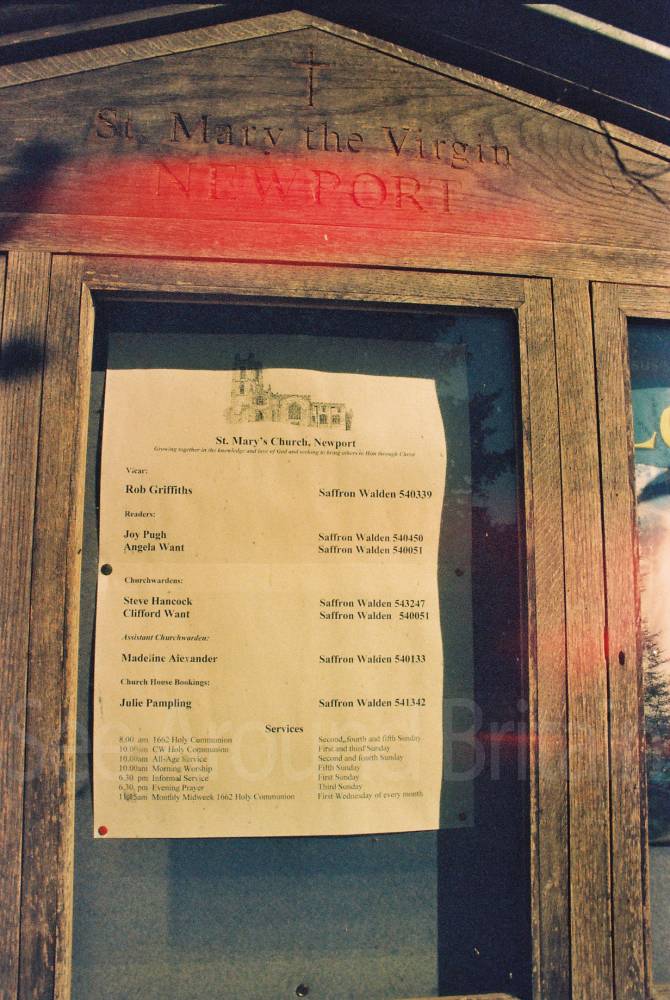 St. Mary the Virgin
NEWPORT
St. Mary's Church, Newport
Growing together in the knowledge and love of God and seeking to bring others to Him through Christ
Vicar:
Rob Griffiths Saffron Walden 540339
Readers:
Joy Pugh Saffron Walden 540450
Angela Want Saffron Walden 540051
Churchwardens:
Steve Hancock Saffron Walden 543247
Clifford Want Saffron Walden 540051
Assistant Churchwarden:
Madeline Alexander Saffron Walden 540133
Church House Bookings:
Julie Pampling Saffron Walden 541342
Services
8.00 am 1662 Holy Communion Second, fourth and fifth Sunday
10.00am CW Holy Communion First and third Sunday
10.00am All-Age Service Second and fourth Sunday
10.00am Morning Worship Fifth Sunday
6.30 pm Informal Service First Sunday
6.30 pm Evening Prayer Third Sunday
11.15am Monthly Midweek 1662 Holy Communion First Wednesday of every month
See Around Britain